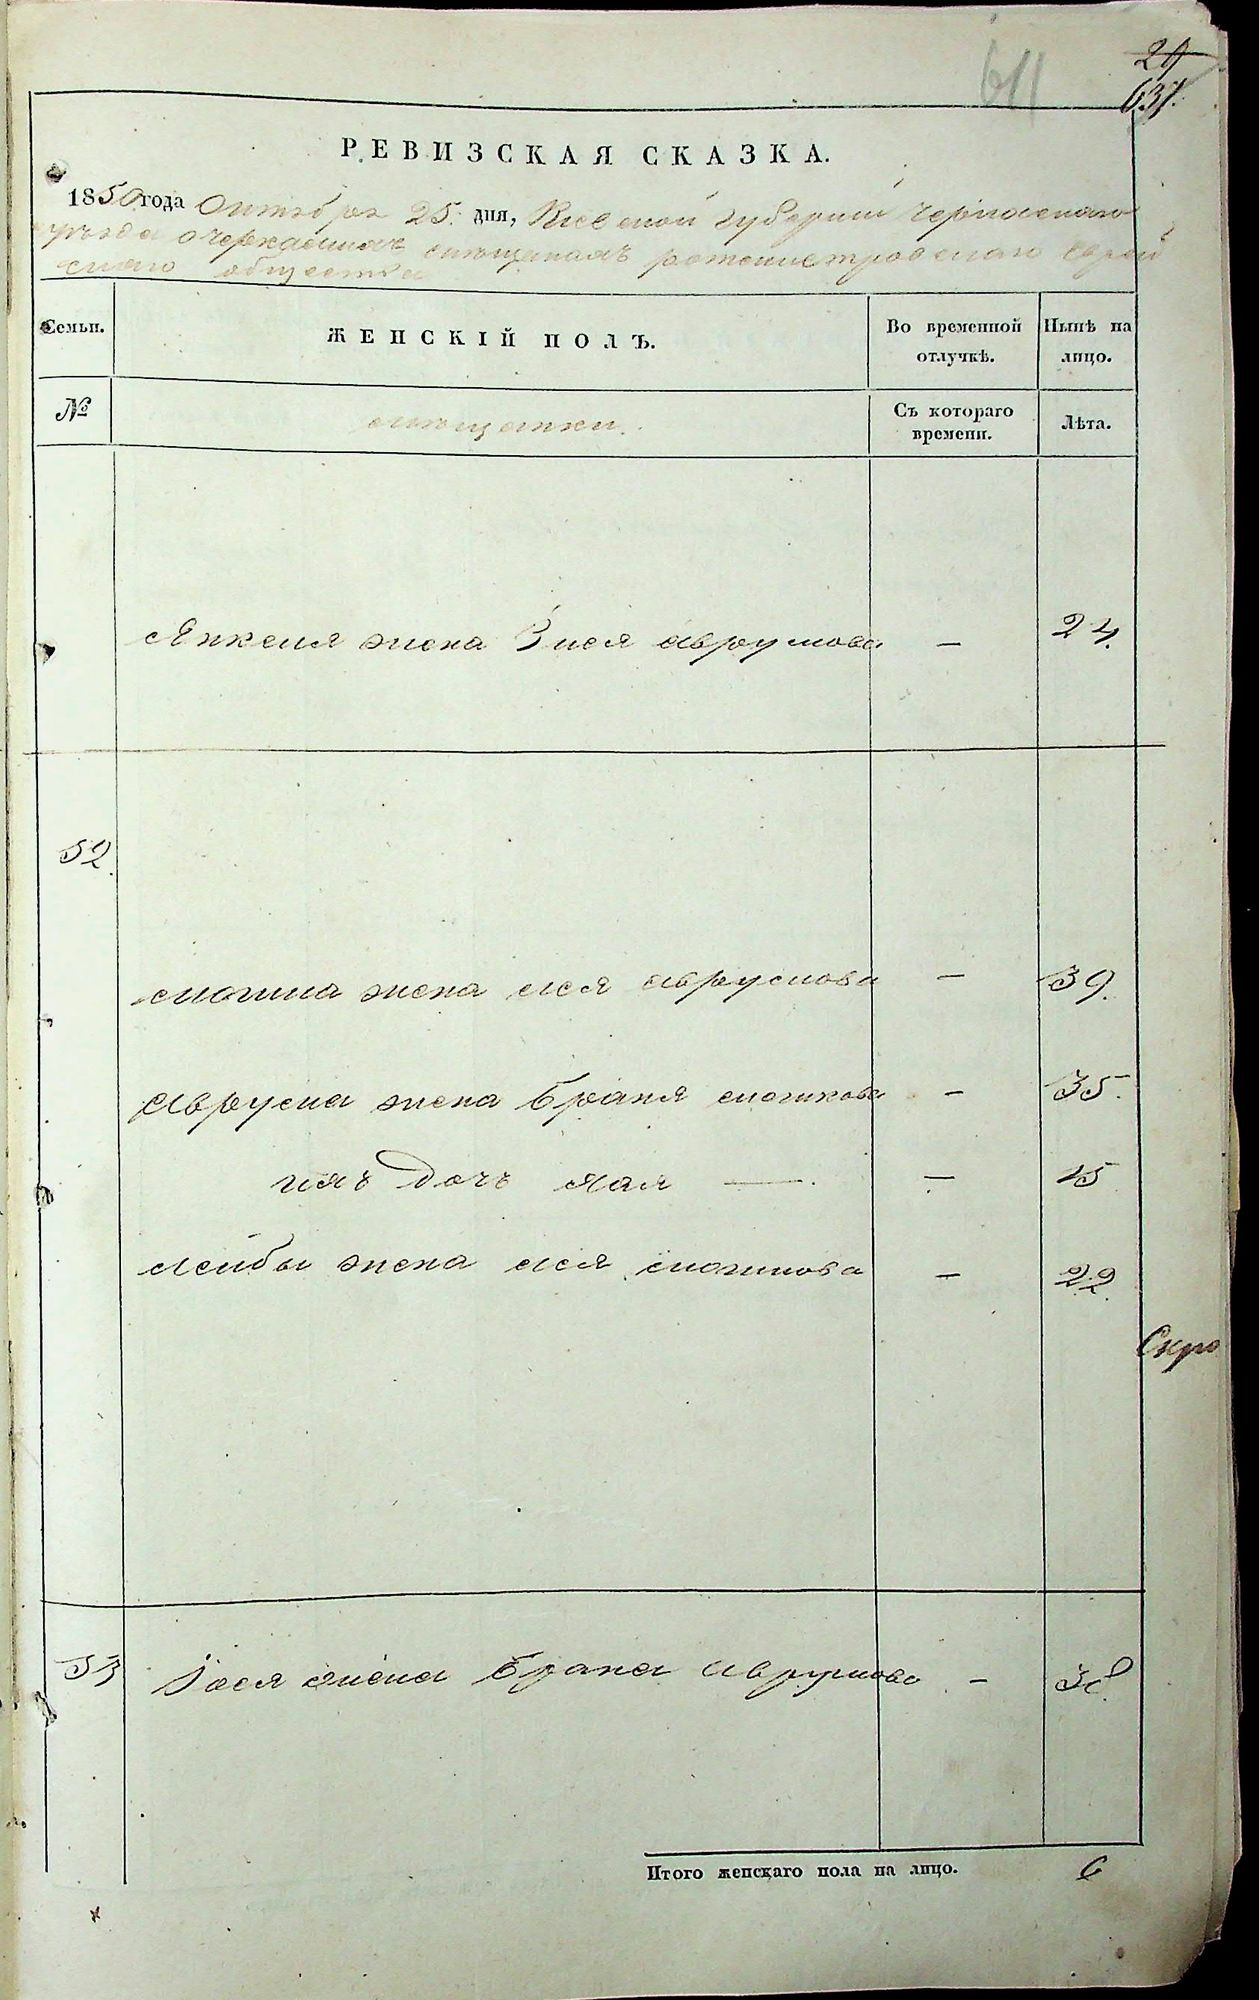 611
29
637.
РЕВИЗСКАЯ СКАЗКА.
1850 года Октября 25. дня, Киевской губернии Черкаского
уѣзда о мещанахъ еврей
скаго общества
Семьи.
ЖЕНСКІЙ ПОЛЪ.
Во временной отлучкѣ.
Нынѣ на лицо.
№
мещанки.
Съ котораго времени.
Лѣта.
Янкеля жена Зися Аврумова — 24.
52.
Мошка жена Лея Аврумова — 39.
Аврума жена Браня Мошкова — 35.
ихъ дочь Хая — — 15
Лейбы жена Лея Мошкова — 22.
Скрѣ
53 Iося жена Брана Аврумова — 38.
Итого женскаго пола на лицо. 6